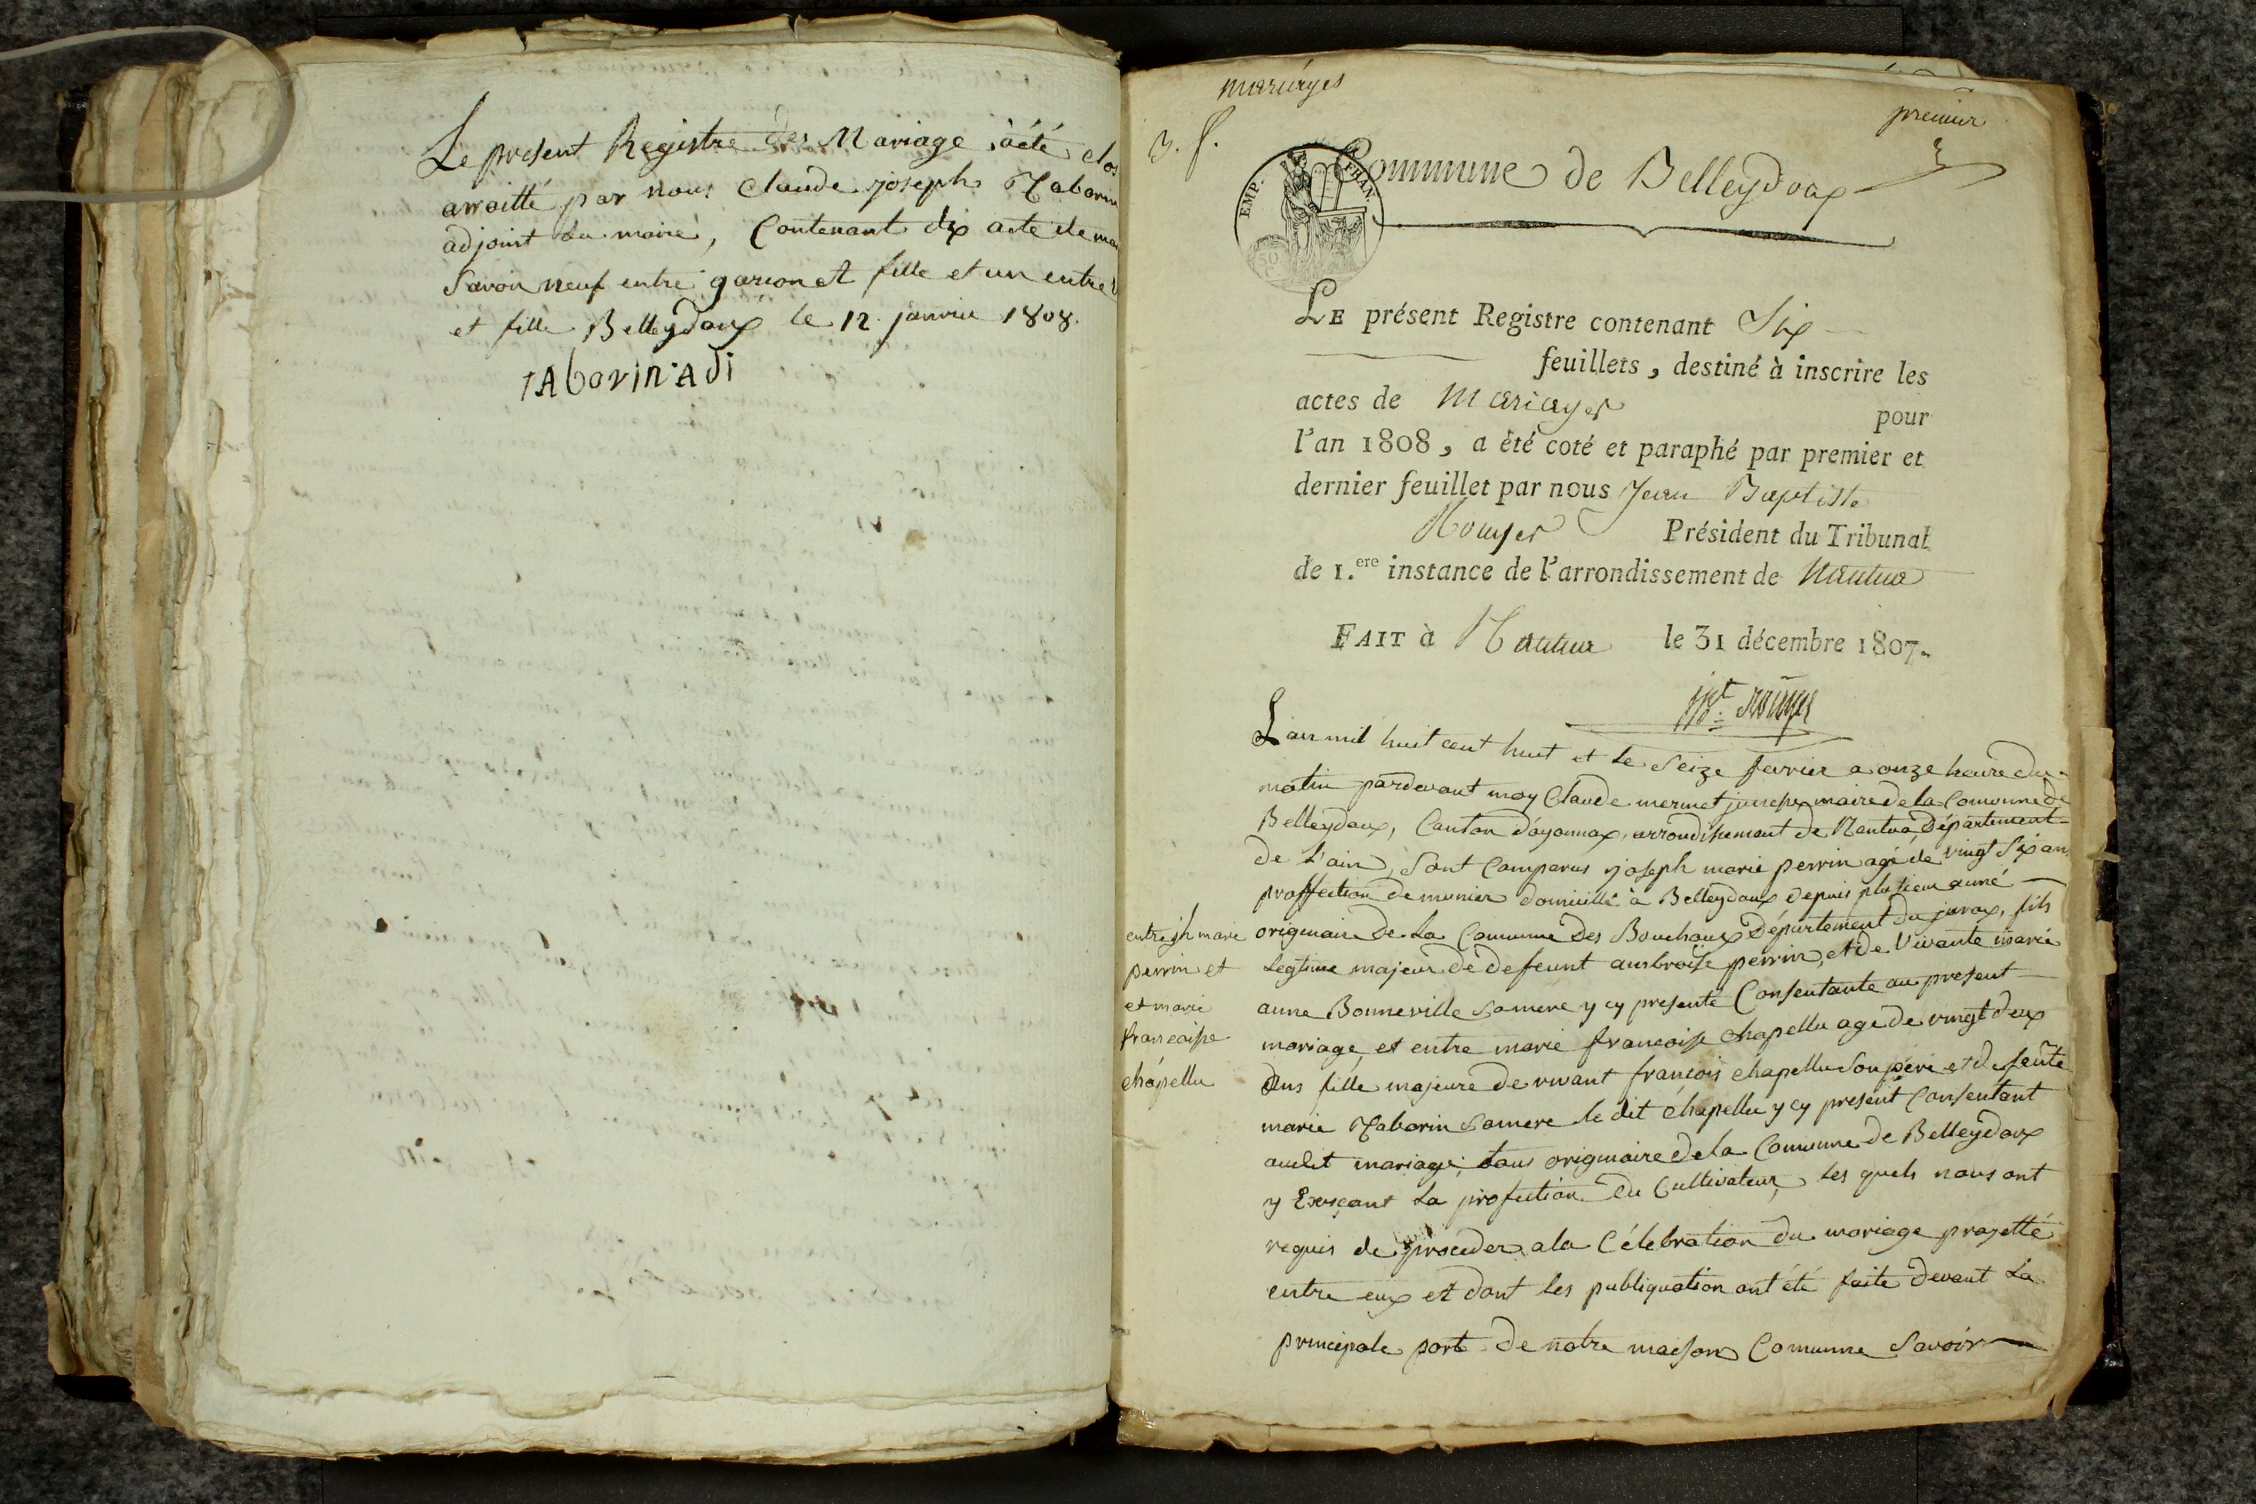 Le present Registre des Mariage à été clos
arraitté par nous Claude joseph Taborin
adjoint du maire, Contenant dix acte de mar
Savoir neuf entre garson et fille et un entre v
et fille Belleydoux le 12 janvier 1808.
TAborin Adi
mariages
premier
3. f.
Commune de Belleydoux
EMP. FRAN.
50 C
LE présent Registre contenant Six
feuillets, destiné à inscrire les
actes de mariages pour
l'an 1808, a été coté et paraphé par premier et
dernier feuillet par nous Jean Baptiste
Rouyer Président du Tribunal
de 1.ere instance de l'arrondissement de Nantua
FAIT à Nantua le 31 décembre 1807.
JBt Rouyer
L'an mil huit cent huit et le Seize fevrier a onze heure du
matin pardevant moy Claude mermet maire de la Comunne de
Belleydoux, Canton d'ayonnax, arrondissement de Nantua, Département
de L'ain, Sont Comparus joseph marie perrin agé de vingt Six ans
proffection de munier domicillié à Belleydoux depuis plusieur anné
originaire de La Comunne Des Bouchoux Département du jurax, fils
Legtime majeur de defeunt ambroise perrin, et de Vivante marie
anne Bonneville Samere y cy presente Consentante au present
mariage et entre marie francoise Chapellu age de vingt deux
Ans fille majeure de vivant francois chapellu Son pere et defeunte
marie Taborin Samere le dit Chapellu y cy present Consentant
audit mariage, tous originaire de la Comunne de Belleydoux
y Exerçant La profection Du Cultivateur, les quels nous ont
requis de proceder a la Célebration du mariage projetté
entre eux et dont les publiquation ont été faite devant La
principale porte de notre maison Comunne Savoir
entre jh marie
perrin et
et marie
francoise
chápellu